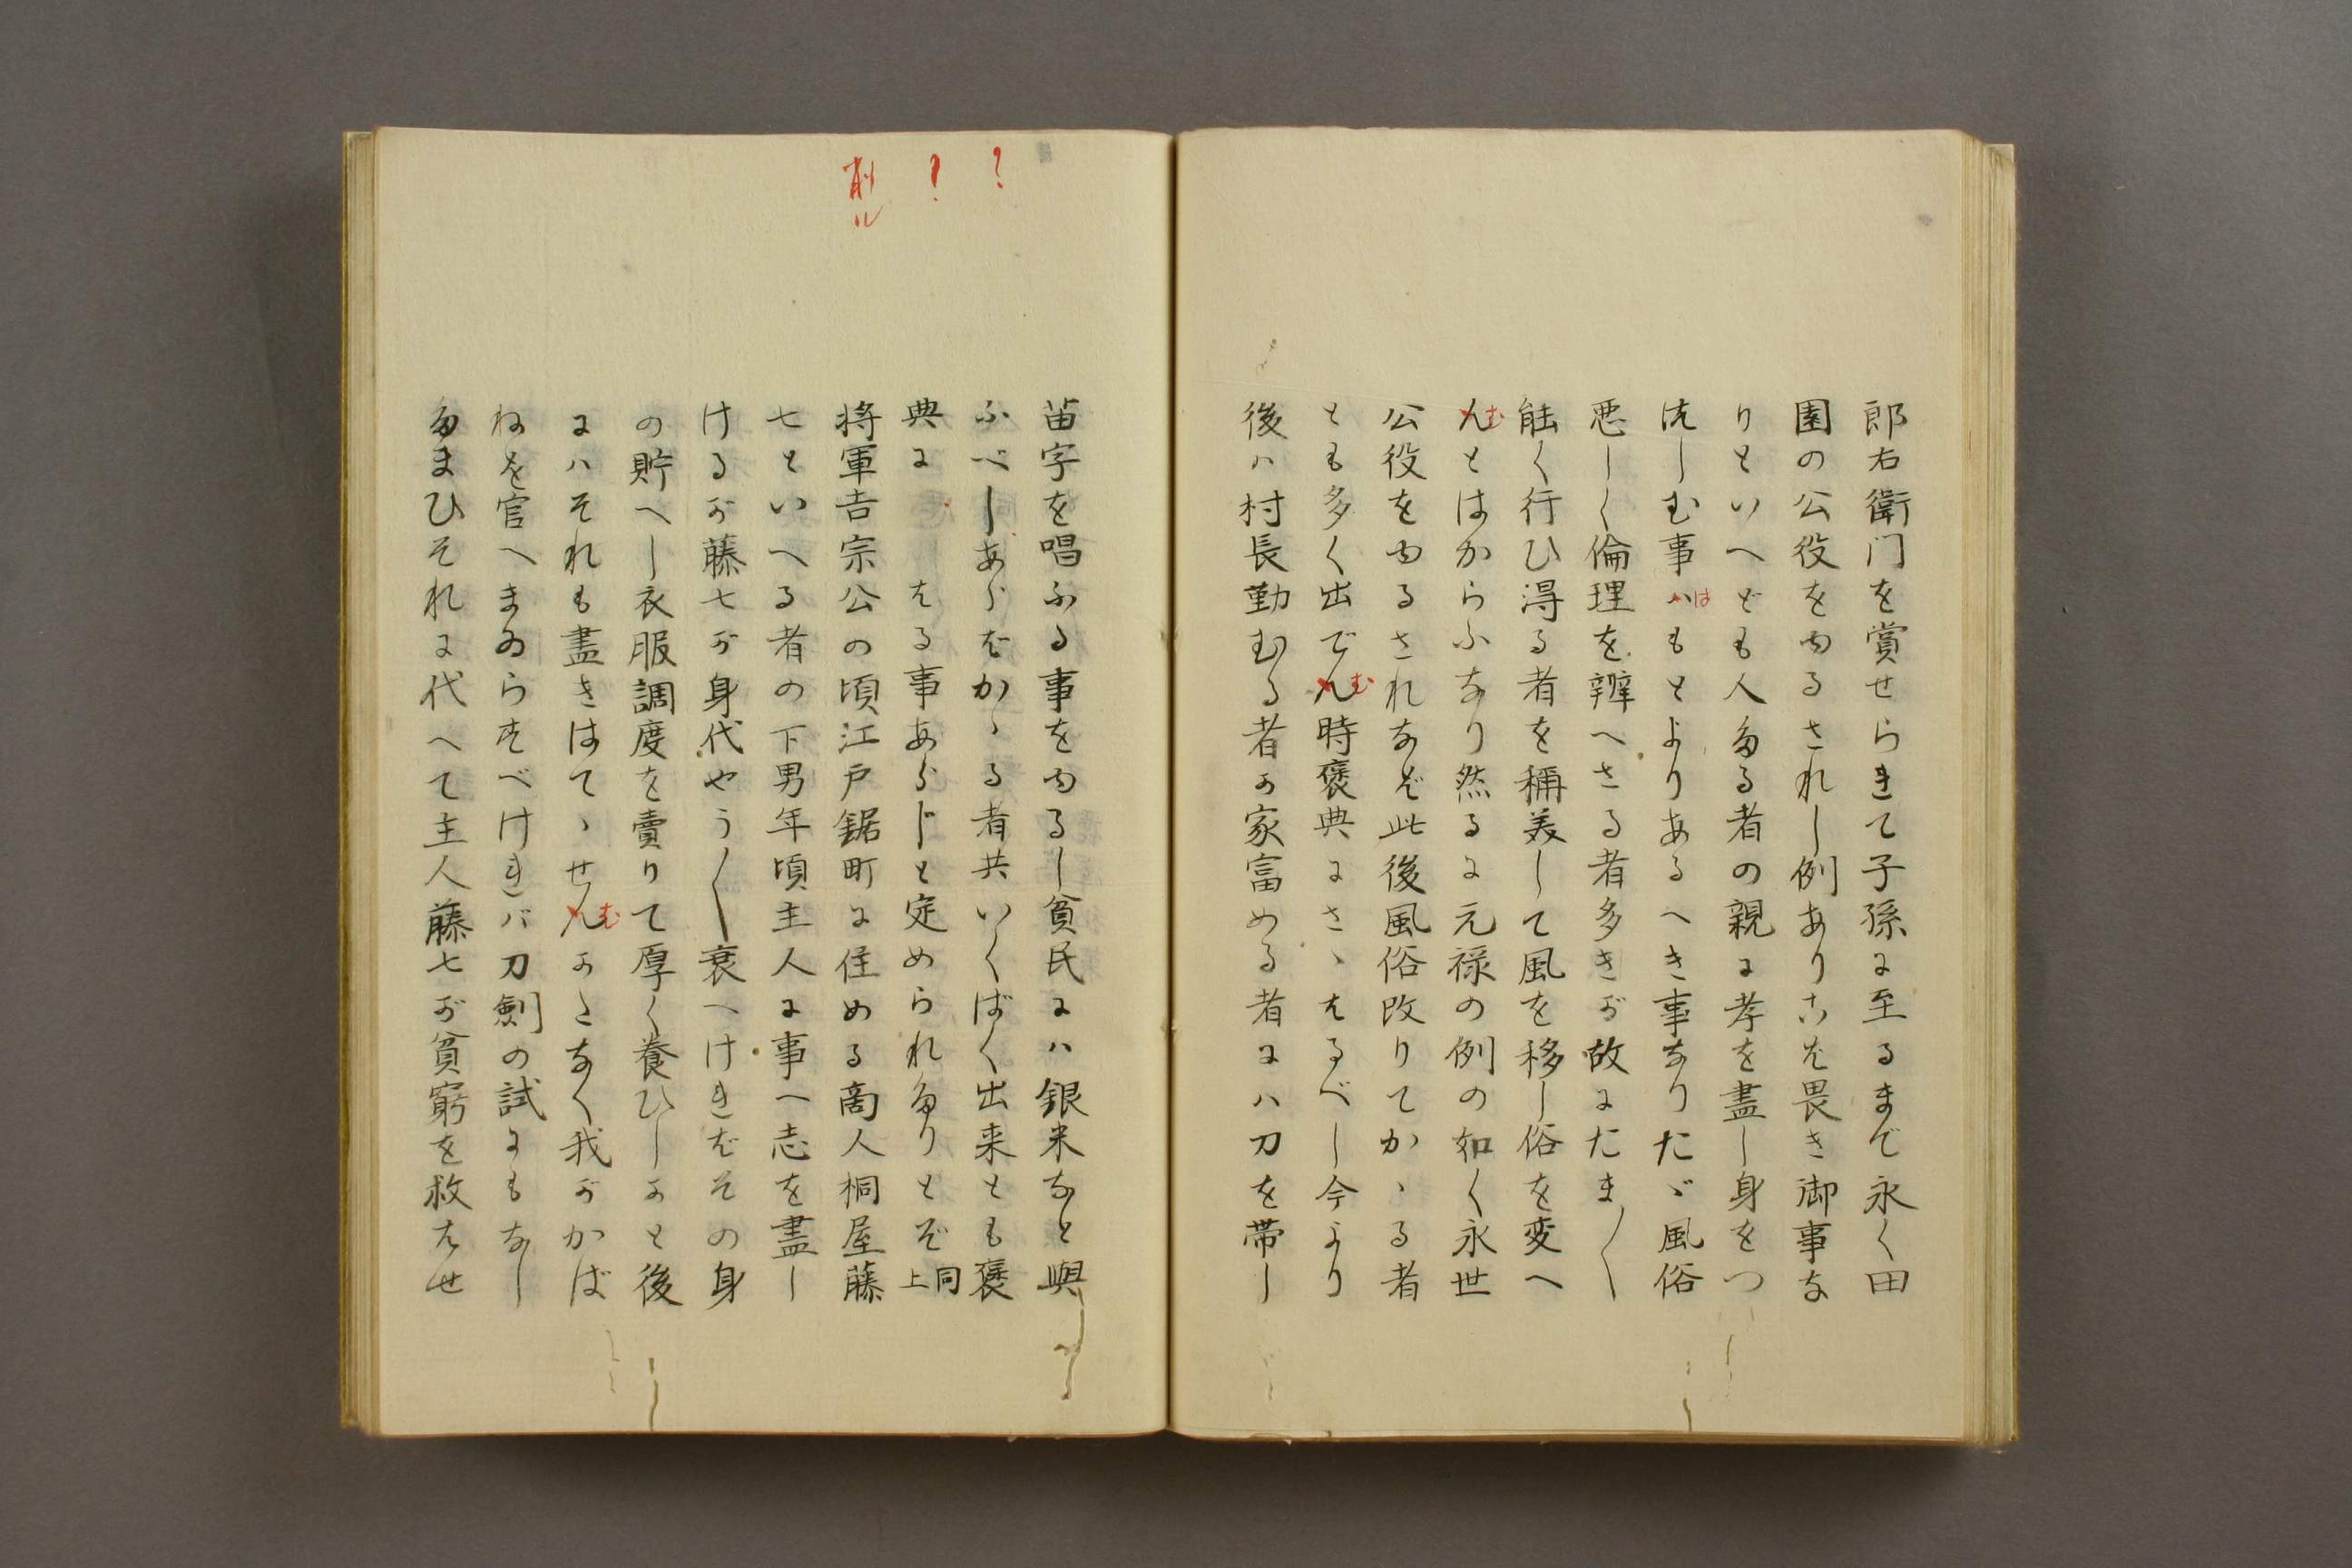 郎右衛门を賞せらきて子孫に至るまで永く田
園の公役をゆるされし例ありこは畏き御事な
りといへども人たる者の親に孝を盡し身をつ
つしむ事はもとよりあるへき事なりたゞ風俗
悪しく倫理を辨へさる者多きが故にたま〱
能く行ひ得る者を稱美して風を移し俗を変へ
むとはからふなり然るに元禄の例の如く永世
公役をゆるされなば此後風俗改りてかゝる者
とも多く出でむ時褒典にさゝはるべし今より
後ハ村長勤むる者か家富める者にハ刀を帯し
?
?
削ル
苗字を唱ふる事をゆるし貧民にハ銀米なと與
ふべしあらばかゝる者共いくばく出来とも褒
典に はる事あらじと定められたりとぞ同上
将軍吉宗公の頃江戸鋸町に住める商人桐屋藤
七といへる者の下男年頃主人に事へ志を盡し
けるが藤七が身代やう〱衰へけきばその身
の貯へし衣服調度を賣りて厚く養ひしかと後
にハそれも盡きはてゝせむかたなく我がかば
ねを官へまゐらすべけきバ刀劍の試にもなし
たまひそれに代へて主人藤七が貧窮を救はせ